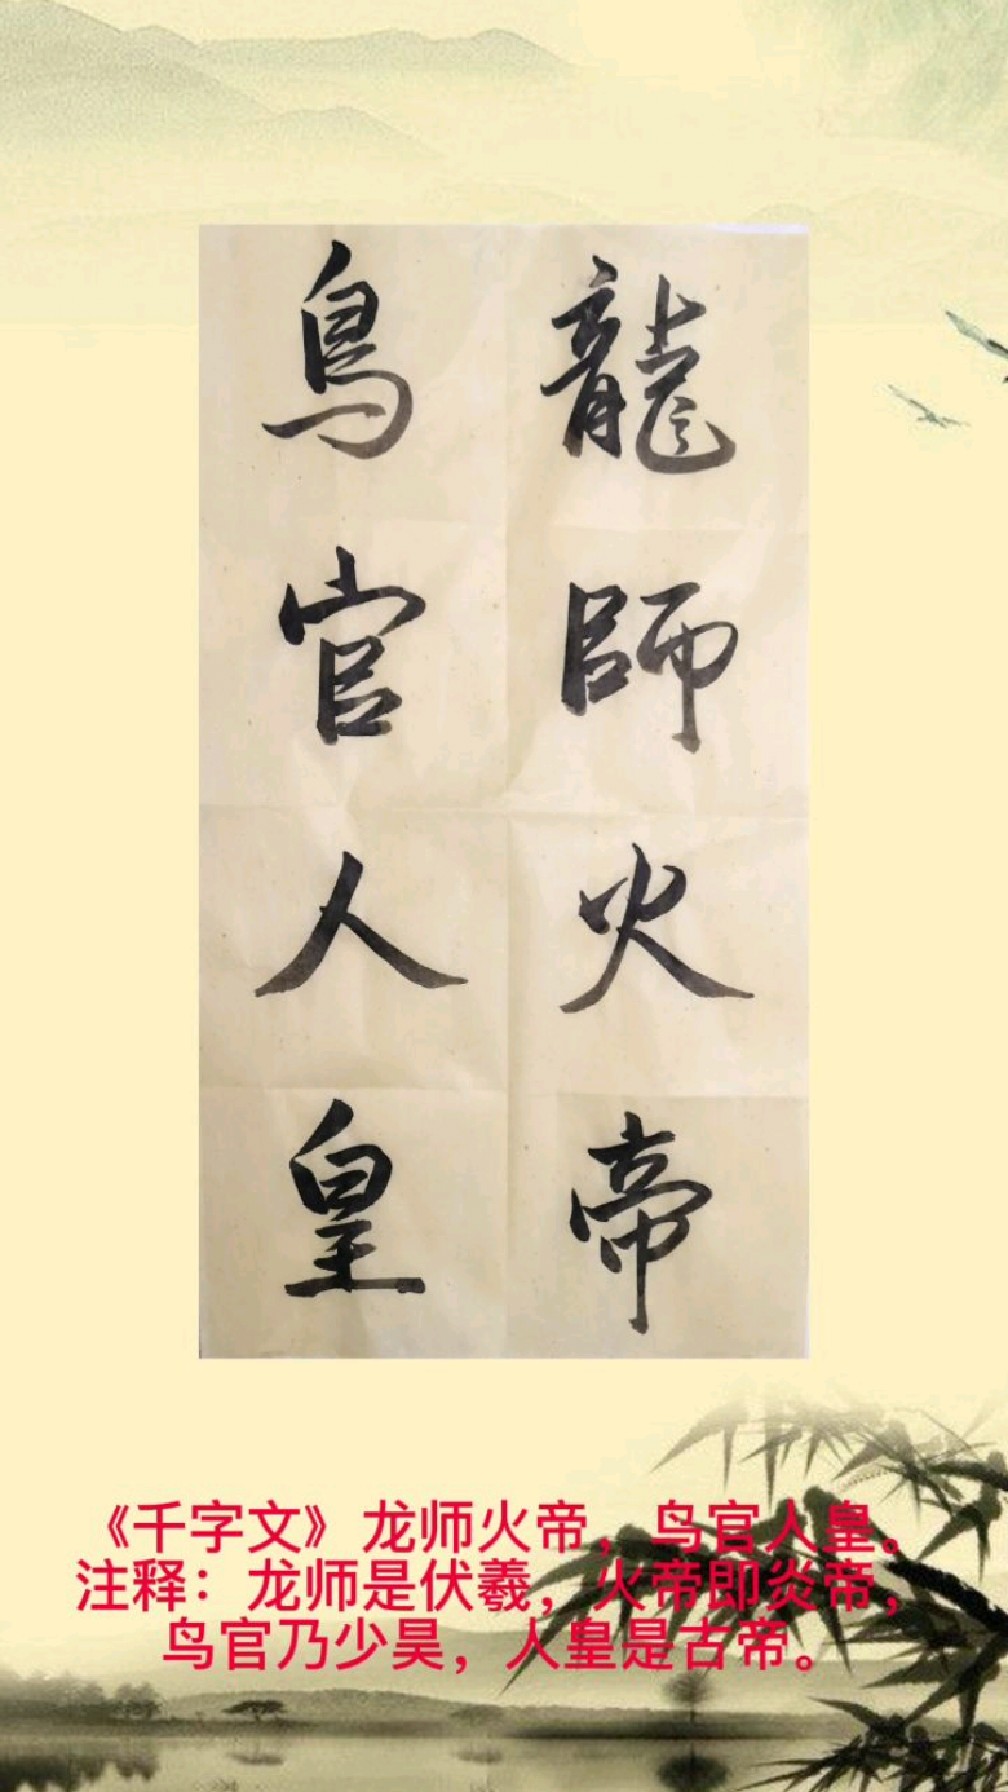 龍師火帝
鳥官人皇
《千字文》龙师火帝，鸟官人皇。
注释：龙师是伏羲，火帝即炎帝，
鸟官乃少昊，人皇是古帝。